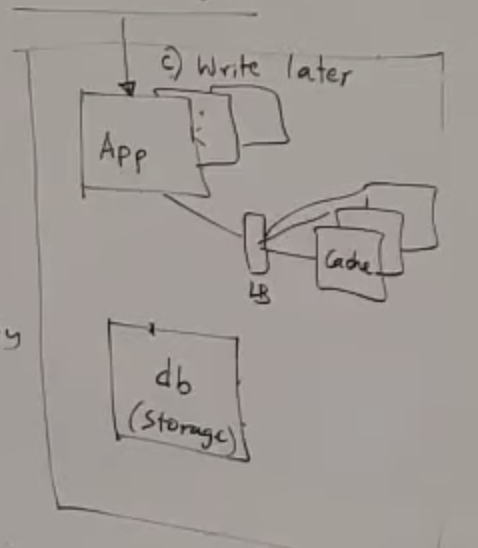 c) Write later
App
Cache
LB
y
db
(Storage)